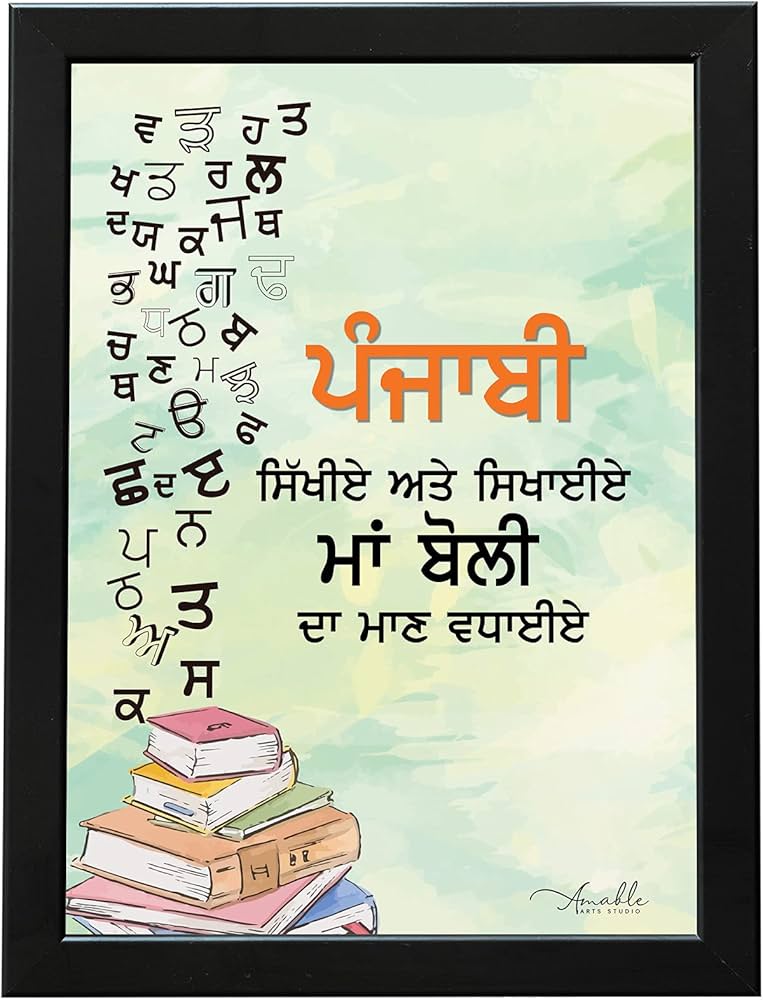 ਵ ੜ ਹ ਤ
ਖ ਡ ਰ ਲ
ਦ ਯ ਕ ਜ ਥ
ਭ ਘ ਗ ਢ
ਧ ਠ ਬ
ਚ ਣ ਮ
ਥ ੳ ਫ
ਛ ਦ ੲ
ਨ
ਪ
ਠ ਤ
ਅ
ਸ
ਕ
ਪੰਜਾਬੀ
ਸਿੱਖੀਏ ਅਤੇ ਸਿਖਾਈਏ
ਮਾਂ ਬੋਲੀ
ਦਾ ਮਾਣ ਵਧਾਈਏ
Amable
ARTS STUDIO